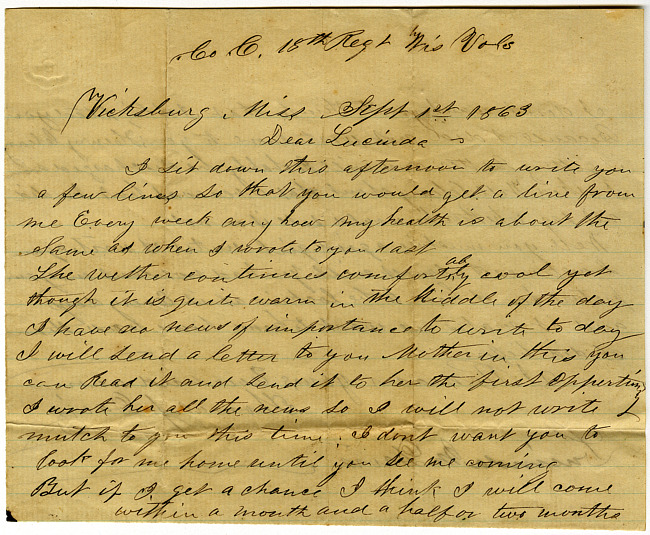 Co C. 18th Regt Wis Vols
Vicksburg, Miss Sept 1st 1863
Dear Lucinda
I sit down this afternoon to write you
a few lines so that you would get a line from
me Every week any how my health is about the
Same as when I wrote to you last
The wether continues comfortably cool yet
though it is quite warm in the Middle of the day
I have no news of importance to write to day
I will send a letter to you Mother in this you
can Read it and Send it to her the first Oppertunity
I wrote her all the news so I will not write
mutch to you this time. I dont want you to
look for me home until you see me coming
But if I get a chance I think I will come
within a month and a half or two months